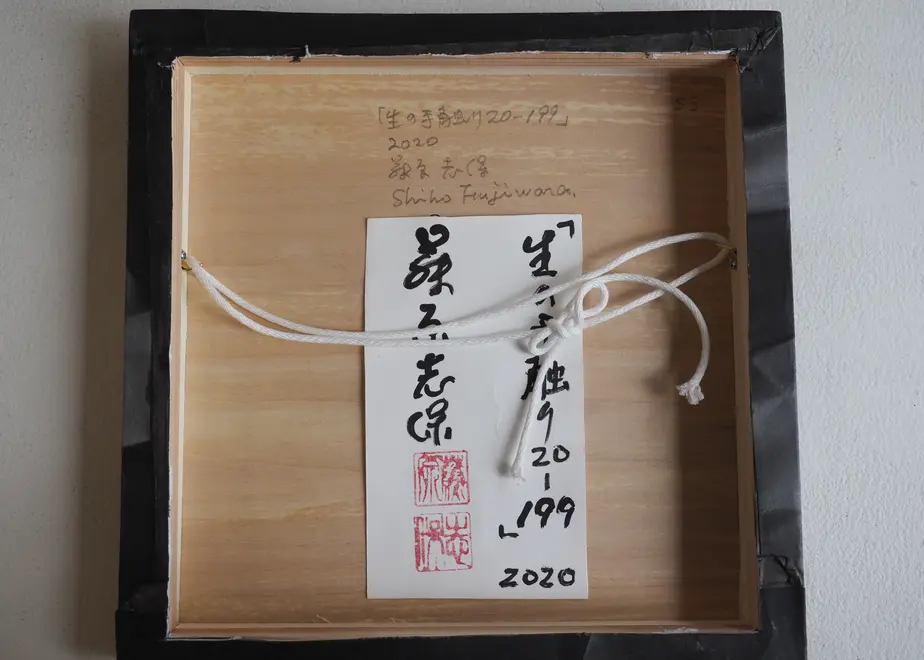 「生の手触り20-199」
2020
藤原志保
Shiho Fujiwara.
「生の手触り20-199」
2020
藤原志保
藤原
志保